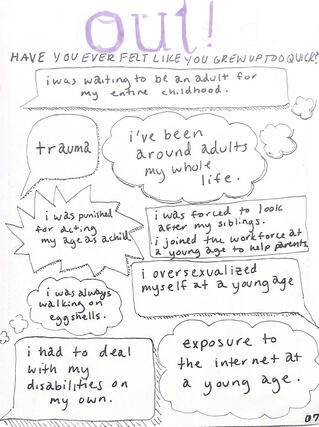 out!
HAVE YOU EVER FELT LIKE YOU GREW UP TOO QUICK?
i was waiting to be an adult for
my entire childhood.
trauma
i've been
around adults
my whole
life.
i was punished
for acting
my age as a child
i was forced to look
after my siblings.
i joined the workforce at
a young age to help parents
i was always
walking on
eggshells.
i oversexualized
myself at a young age
i had to deal
with my
disabilities on
my own.
exposure to
the internet at
a young age.
07